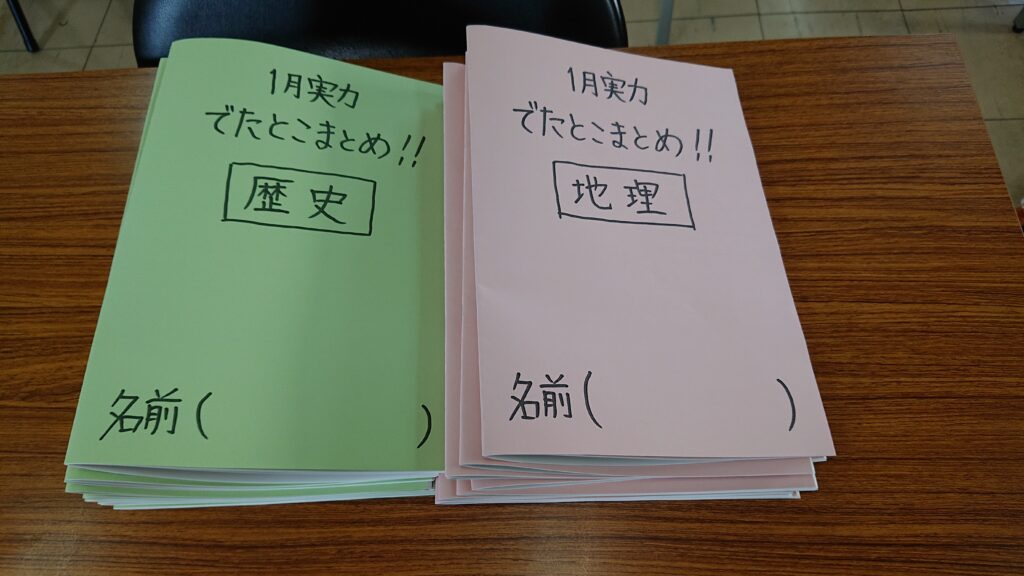 1月実力
でたとこまとめ!!
歴史
名前( )
1月実力
でたとこまとめ!!
地理
名前( )